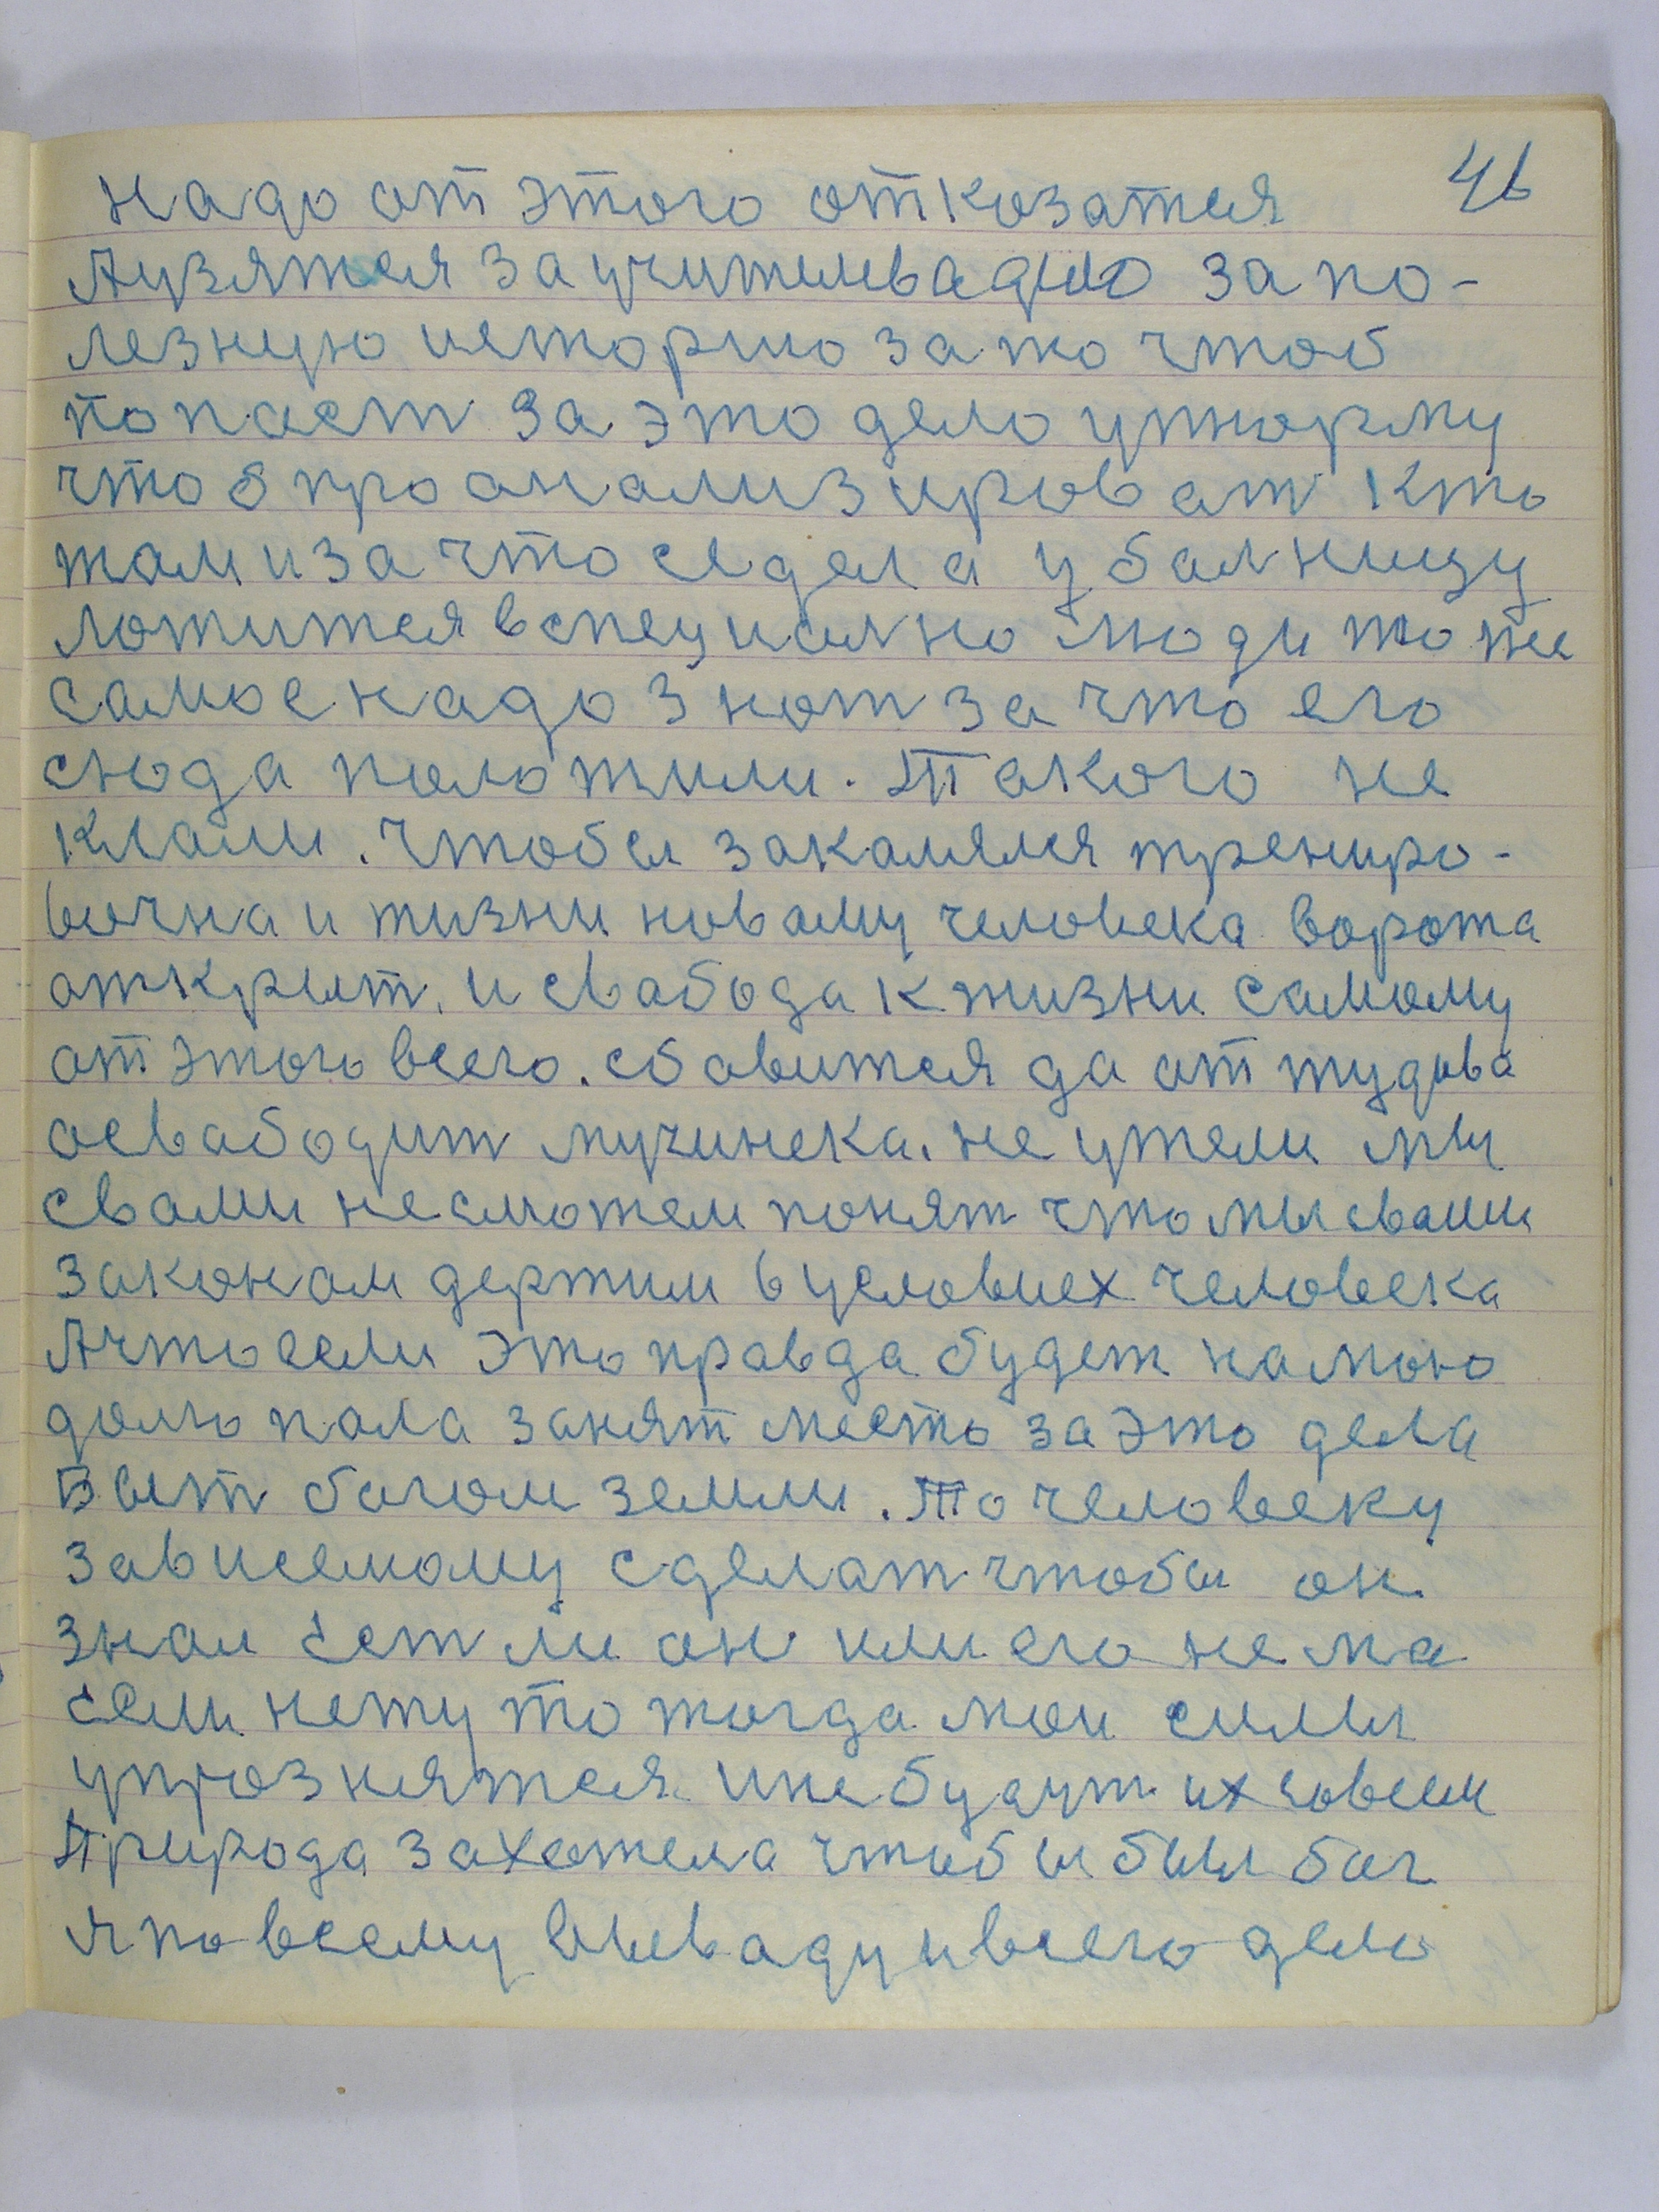 46
надо от этого отказатся
А узятся за учительвадию за по-
лезную историю за то чтоб
попаст за это дело утюрму
чтоб проанализироват кто
там и за что седела у болницу
ложится вспециално люди то же
самое надо знат за что его
сюда положили. Такого не
клали. Чтобы закалялся трениро-
вочна и жизни новому человека ворота
открыт. и свабода к жизни самому
от этого всего. сбавится да от тудова
освабодит мучинека. не ужели мы
свами несможем понят что мы сваим
законом держим в условиех человека
А что если это правда будет на мою
долю пала занят место за это дела
Быт богом земли. То человеку
зависемому сделат чтобы он
знал ест ли он или его нема
если нету то тогда мои силы
упрозднятся и не будут их совсем
Природа захотела чтобы был бог
я по всему вываду и всего дело